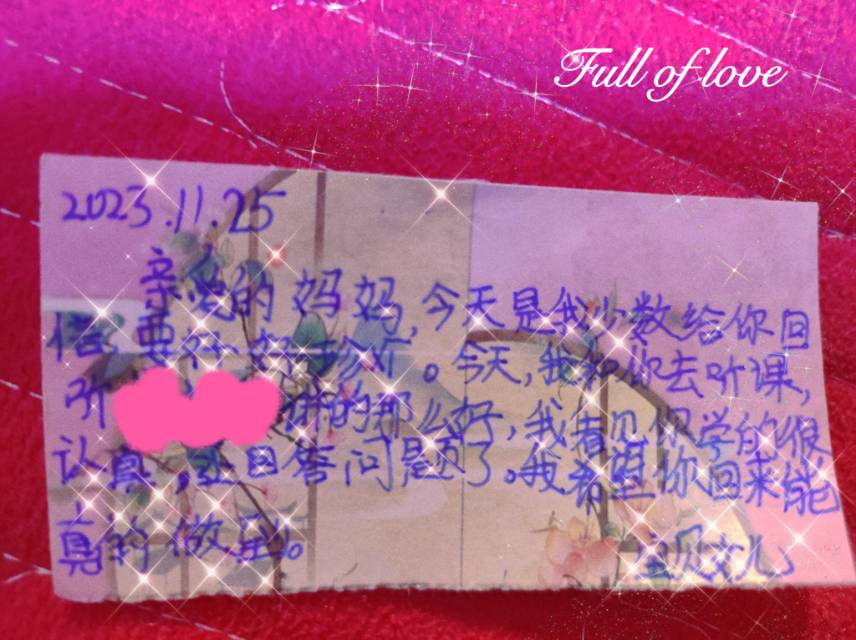 Full of love
2023.11.25
亲爱的妈妈,今天是我少数给你回
信,要你好好珍介。今天,我和你去听课,
听 讲的那么好,我看见你学的很
认真,还回答问题了。我希望你回来能
真的做到。
宝贝女儿